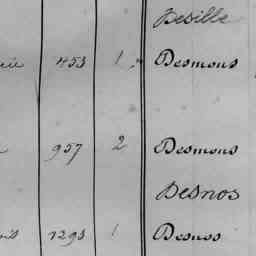 Besille
453 1 Desmons
957 2 Desmons
Desnos
1293 1 Desnos